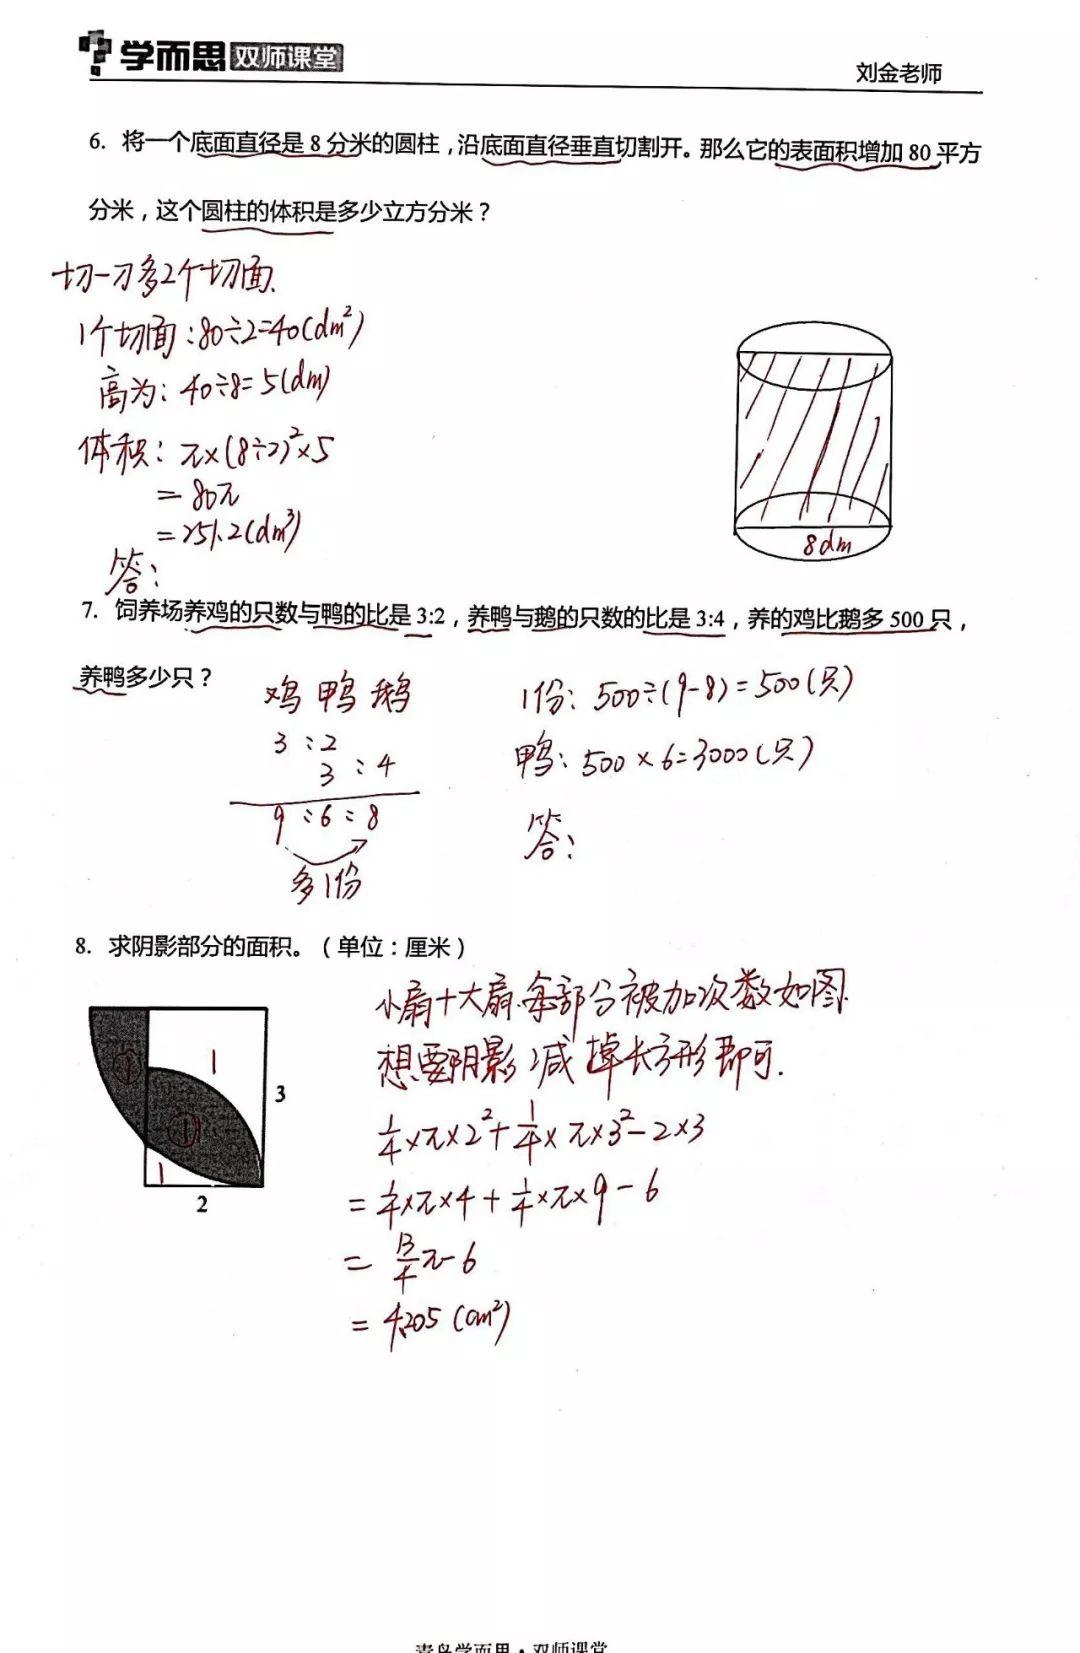 学而思双师课堂
刘金老师
6. 将一个底面直径是 8 分米的圆柱，沿底面直径垂直切割开。那么它的表面积增加 80 平方
分米，这个圆柱的体积是多少立方分米？
切一刀多2个切面.
1个切面:80÷2=40(dm²)
高为: 40÷8=5(dm)
体积: π×(8÷2)²×5
=80π
=251.2(dm³)
答:
8dm
7. 饲养场养鸡的只数与鸭的比是 3:2，养鸭与鹅的只数的比是 3:4，养的鸡比鹅多 500 只，
养鸭多少只？
鸡 鸭 鹅
3:2
3:4
9:6:8
多1份
1份: 500÷(9-8)=500(只)
鸭: 500×6=3000(只)
答:
8. 求阴影部分的面积。（单位：厘米）
① 1
3
①
1
2
小扇+大扇.每部分被加次数如图.
想要阴影减掉长方形即可.
1/4×π×2²+1/4×π×3²-2×3
=1/4×π×4+1/4×π×9-6
=13/4π-6
=4.205(cm²)
青岛学而思·双师课堂